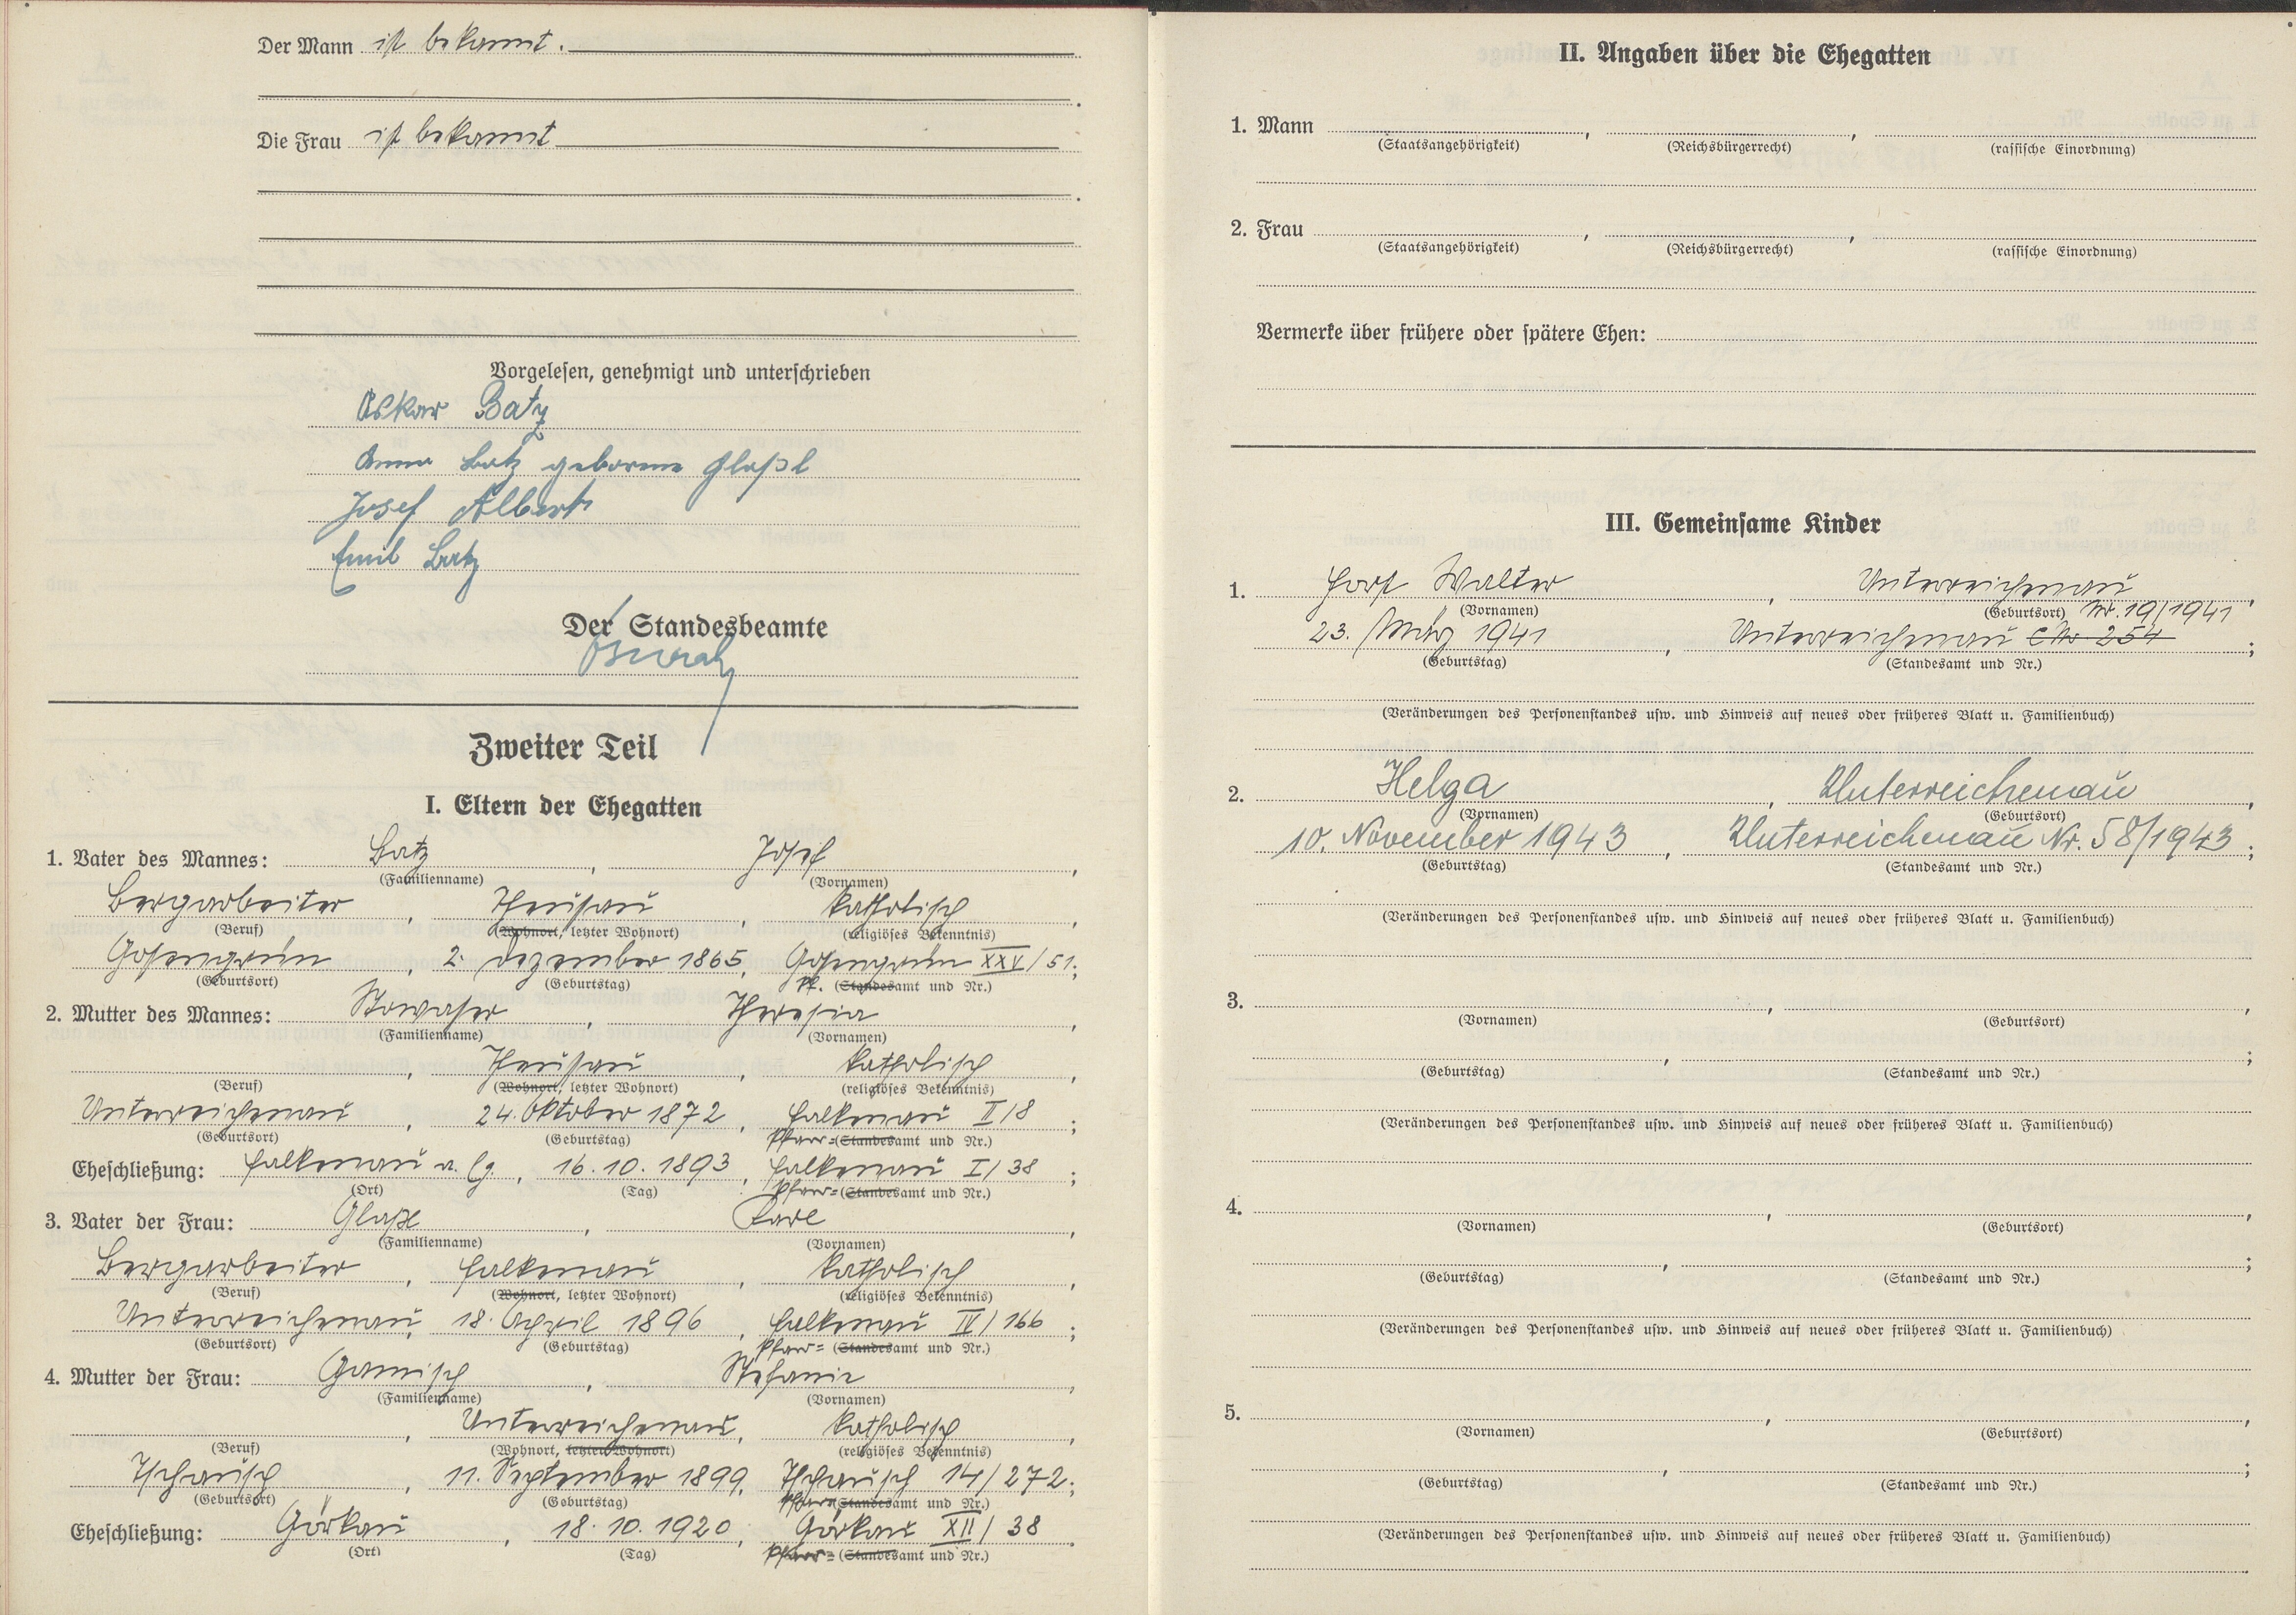 Der Mann ist bekannt.
Die Frau ist bekannt
Vorgelesen, genehmigt und unterschrieben
Oskar Batz
Anna Batz geborene Glaßl
Josef Albert
Emil Batz
Der Standesbeamte
Zweiter Teil
I. Eltern der Ehegatten
1. Vater des Mannes: Batz, Josef,
(Familienname) (Vornamen)
Bergarbeiter, Theusau, katholisch,
(Beruf) (Wohnort, letzter Wohnort) (religiöses Bekenntnis)
Gossengrün, 2. Dezember 1865, Gossengrün XXV/51;
(Geburtsort) (Geburtstag) Pf. (Standesamt und Nr.)
2. Mutter des Mannes: Stowasser, Theresia,
(Familienname) (Vornamen)
, Theusau, katholisch,
(Beruf) (Wohnort, letzter Wohnort) (religiöses Bekenntnis)
Unterreichenau, 24. Oktober 1872, Falkenau II/8;
(Geburtsort) (Geburtstag) Pfarr=(Standesamt und Nr.)
Eheschließung: Falkenau a. Eg., 16.10.1893, Falkenau I/38;
(Ort) (Tag) Pfarr=(Standesamt und Nr.)
3. Vater der Frau: Glaßl, Karl,
(Familienname) (Vornamen)
Bergarbeiter, Falkenau, katholisch,
(Beruf) (Wohnort, letzter Wohnort) (religiöses Bekenntnis)
Unterreichenau, 18. April 1896, Falkenau IV/166;
(Geburtsort) (Geburtstag) Pfarr=(Standesamt und Nr.)
4. Mutter der Frau: Stefanie,
(Familienname) (Vornamen)
, Unterreichenau, katholisch,
(Beruf) (Wohnort, letzter Wohnort) (religiöses Bekenntnis)
Tschausch, 11. September 1899, Tschausch 14/272;
(Geburtsort) (Geburtstag) Pfarr(Standesamt und Nr.)
Eheschließung: Görkau, 18.10.1920, Görkau XII/38.
(Ort) (Tag) Pfarr=(Standesamt und Nr.)
II. Angaben über die Ehegatten
1. Mann , ,
(Staatsangehörigkeit) (Reichsbürgerrecht) (rassische Einordnung)
2. Frau , ,
(Staatsangehörigkeit) (Reichsbürgerrecht) (rassische Einordnung)
Vermerke über frühere oder spätere Ehen:
III. Gemeinsame Kinder
1. Horst Walter, Unterreichenau,
(Vornamen) (Geburtsort) Nr. 19/1941
23. März 1941, Unterreichenau CNr 254;
(Geburtstag) (Standesamt und Nr.)
(Veränderungen des Personenstandes usw. und Hinweis auf neues oder früheres Blatt u. Familienbuch)
2. Helga, Unterreichenau,
(Vornamen) (Geburtsort)
10. November 1943, Unterreichenau Nr. 58/1943;
(Geburtstag) (Standesamt und Nr.)
(Veränderungen des Personenstandes usw. und Hinweis auf neues oder früheres Blatt u. Familienbuch)
3. , ,
(Vornamen) (Geburtsort)
, ;
(Geburtstag) (Standesamt und Nr.)
(Veränderungen des Personenstandes usw. und Hinweis auf neues oder früheres Blatt u. Familienbuch)
4. , ,
(Vornamen) (Geburtsort)
, ;
(Geburtstag) (Standesamt und Nr.)
(Veränderungen des Personenstandes usw. und Hinweis auf neues oder früheres Blatt u. Familienbuch)
5. , ,
(Vornamen) (Geburtsort)
, ;
(Geburtstag) (Standesamt und Nr.)
(Veränderungen des Personenstandes usw. und Hinweis auf neues oder früheres Blatt u. Familienbuch)